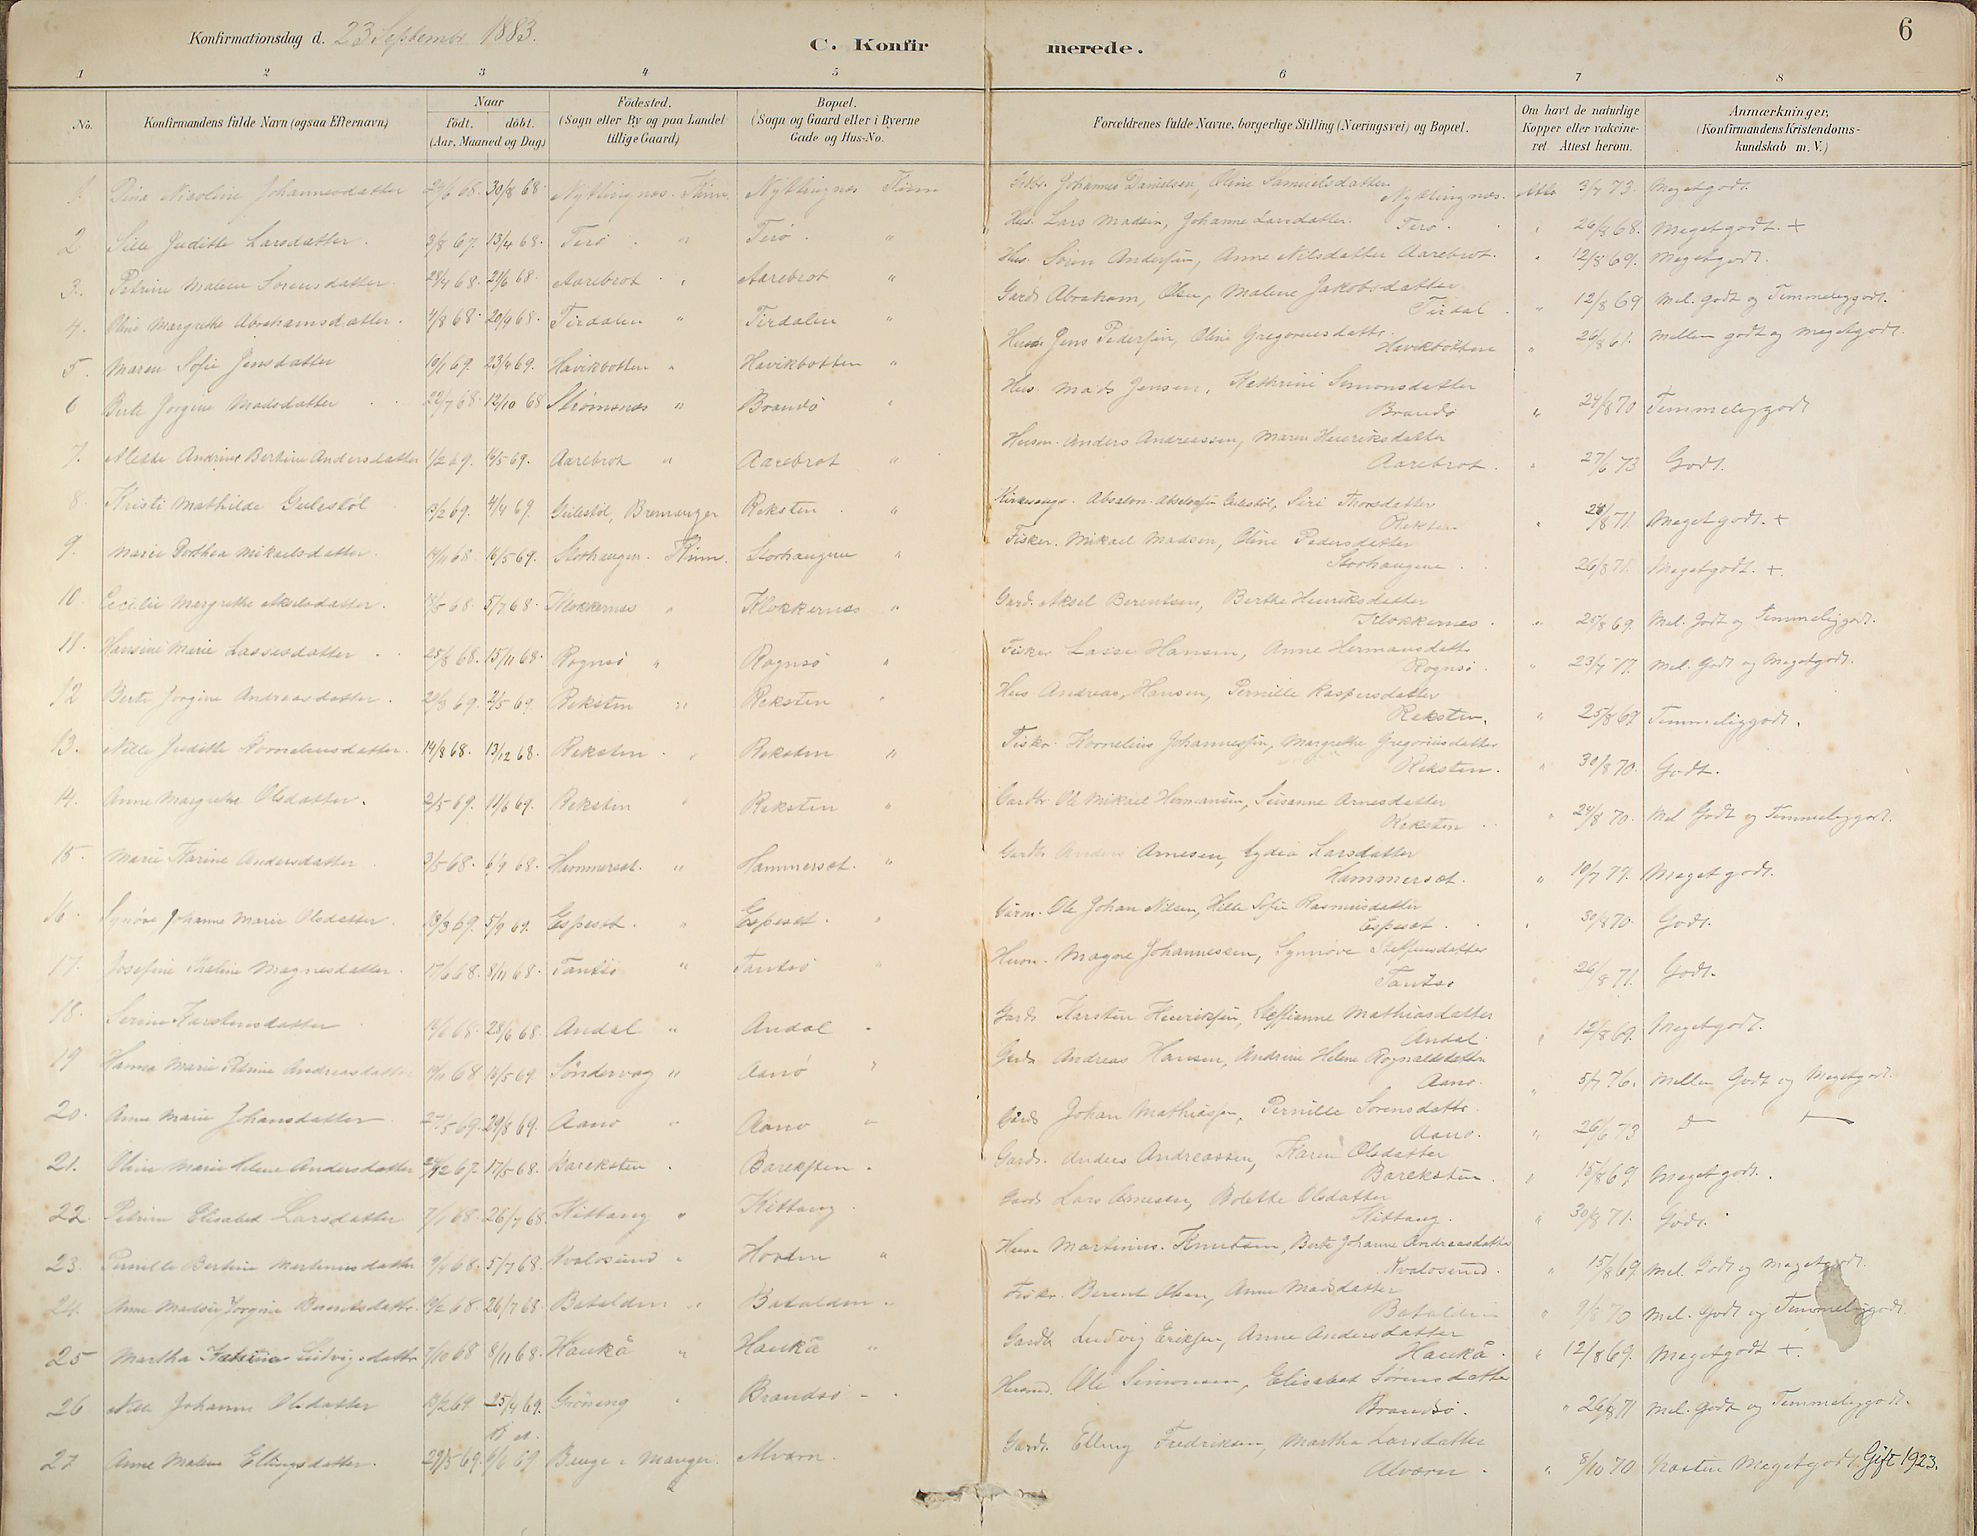 Konfirmationsdag d. 23 September 1883.
C. Konfirmerede.
6
1 2 3 4 5 6 7 8
No.
Konfirmandens fulde Navn (ogsaa Efternavn)
Naar
födt. döbt.
(Aar, Maaned og Dag)
Födested.
(Sogn eller By og paa Landet tillige Gaard)
Bopæl.
(Sogn og Gaard eller i Byerne Gade og Hus-No.
Forældrenes fulde Navne, borgerlige Stilling (Næringsvei) og Bopæl.
Om havt de naturlige Kopper eller vakcineret Attest herom.
Anmærkninger.
(Konfirmandens Kristendomskundskab m. V.)
1. Dina Nicoline Johannesdatter 68. 30/8 68. Nyttingnæs. Kinn. Nyttingnæs Kinn Johannes Danielsen, Oline Samuelsdatter Nyttingnæs. 3/7 73. Megetgodt.
2. Sille Juditte Larsdatter. 3/8 67. 13/4 68. Terø " Terø " Hus. Lars Madsen, Johanne Larsdatter. Terø. " 26/8 68. Megetgodt. +
3. Petrine Malene Sørensdatter. 28/4 68. 21/6 68. Aarebrot " Aarebrot " Hus. Søren Andersen, Anne Nilsdatter Aarebrot. " 12/8 69. Megetgodt.
4. Oline Margrethe Abrahamsdatter. 4/8 68. 20/9 68. Tirdalen " Tirdalen " Gardb. Abraham Olsen, Malene Jakobsdatter Tirdal. " 12/8 69 Mel. godt og Temmeliggodt.
5. Maren Sofie Jensdatter 10/1 69. 23/4 69. Havikbotten " Havikbotten " Jens Pedersen, Oline Gregoriusdattr. Havikbotten " 26/8 61. Mellem godt og megetgodt.
6 Berte Jorgine Madsdatter 22/7 68. 12/10 68 Strømsnæs " Brandsö " Hus. Mads Jensen, Kathrine Simonsdatter Brandsö " 24/8 70 Temmeliggodt
7. Andrine Bertine Andersdatter 1/2 69. 69. Aarebrot " Aarebrot " Husm. Anders Andreassen, Maren Henriksdatter Aarebrot. " 27/6 73 Godt.
8. Kristi Mathilde Geilestøl 13/2 69. 4/4 69. Geilestøl, Bremanger Reksten " Kirkesangr. Absalon Geilestøl, Siri Thorsdatter Reksten " 71. Megetgodt. +
9. Marie Dorthea Mikaelsdatter. 14/11 68. 16/5 69. Storhaugen. Kinn. Storhaugene " Fisker. Mikael Madsen, Oline Pedersdatter Storhaugene. 26/8 71. Megetgodt. +.
10. Cecilie Margrethe Akselsdatter. 68. 5/7 68. Klokkernes " Klokkernes " Gard. Aksel Berentsen, Berthe Henriksdatter Klokkernes. " 25/8 69. Mel. Godt og Temmeliggodt.
11. Hansine Marie Lassesdatter 25/8 68. 15/11 68. Rognsö " Rognsö " Fisker Lasse Hansen, Anne Hermansdattr Rognsö. " 23/7 77. Mel. Godt og Megetgodt.
12 Berte Jorgine Andreasdatter. 69. 2/5 69. Reksten " Reksten " Hus. Andreas Hansen, Pernille Kaspersdatter Reksten. " 25/8 69 Temmeliggodt.
13. Nille Juditte Korneliusdatter. 14/8 68. 13/12 68. Reksten " Reksten " Fiskr. Kornelius Johannesen, Margrethe Gregoriusdatter Reksten. " 30/8 70. Godt.
14. Anne Margrethe Olsdatter. 2/5 69. 11/6 69. Reksten " Reksten " Gardbr. Ole Mikael Hermansen, Susanne Arnesdatter Reksten. " 24/8 70. Mel Godt og Temmeliggodt.
15. Marie Karine Andersdatter 3/5 68. 6/9 68. Hammerset. " Hammerset. " Gardb. Anders Arnesen, Lydia Larsdatter Hammerset. " 10/7 77. Megetgodt.
16. Synöve Johanne Marie Olsdatter. 18/3 69. 5/9 69. Espeset. " Espeset. " Ole Johan Nilsen, Helle Sofie Rasmusdatter Espeset. " 30/8 70. Godt.
17. Josefine Maline Magnesdatter. 17/6 68. 8/11 68. Tantsö " Tantsö " Husm. Magne Johannessen, Synnöve Steffensdatter Tantsö " 26/8 71. Godt.
18. Serine Karstensdatter 68. 28/6 68. Andal " Andal " Gardb Karsten Henriksen, Steffianne Mathiasdatter Andal. " 12/8 69. Megetgodt.
19 Hanna Marie Andreasdatter 68 16/5 69. Söndervag " Aanö " Gardb Andreas Hansen, Andrine Helene Rognaldsdatter Aanö. " 5/7 76. Mellem Godt og Megetgodt.
20. Anne Marie Johansdatter 27/5 69. 29/8 69. Aanö " Aanö " Gardb Johan Mathiasen, Pernille Sörensdattr. Aanö. " 26/6 73
21. Oline Marie Helene Andersdatter /12 67. 17/5 68. Bareksten. Bareksten. Gardb. Anders Andreassen, Karen Olsdatter Bareksten. " 15/8 69 Megetgodt.
22. Petrine Elisabet Larsdatter 7/1 68. 26/7 68. Kittang " Kittang. Gardb Lars Arnesen, Bolette Olsdatter Kittang. " 30/8 71. Godt.
23. Pernille Bertine Martinusdatter 68. 5/7 68. Kvalosund. Hovden " Husm Martinius Knutsen, Berte Johanne Andreasdatter Kvalosund. " 15/8 69. Mel. Godt og Megetgodt.
24. Anne Madsine Jorgine Berentsdattr. 68. 26/7 68. Batalden " Batalden " Fiskr. Berent Olsen, Anne Madsdatter Batalden " 9/8 70 Mel. Godt og Temmeliggodt.
25 Martha Ludvigsdattr 7/10 68 8/11 68. Haukå " Haukå " Gardb Ludvig Eriksen, Anne Andersdatter Haukå. " 12/8 69. Megetgodt +.
26 Nille Johanne Olsdatter 13/2 69. 25/4 69. Gröning " Brandsö - Husmd. Ole Simonsen, Elisabet Sörensdatter Brandsö. " 26/8 71 Mel. Godt og Temmeliggodt.
27. Anne Malene Ellingsdatter. 29/3 69. 6/6 69 Berge i Manger. Alværn. Gardb. Elling Fredriksen, Martha Larsdatter Alværn. " 8/10 70 Næsten Megetgodt. Gift 1923.